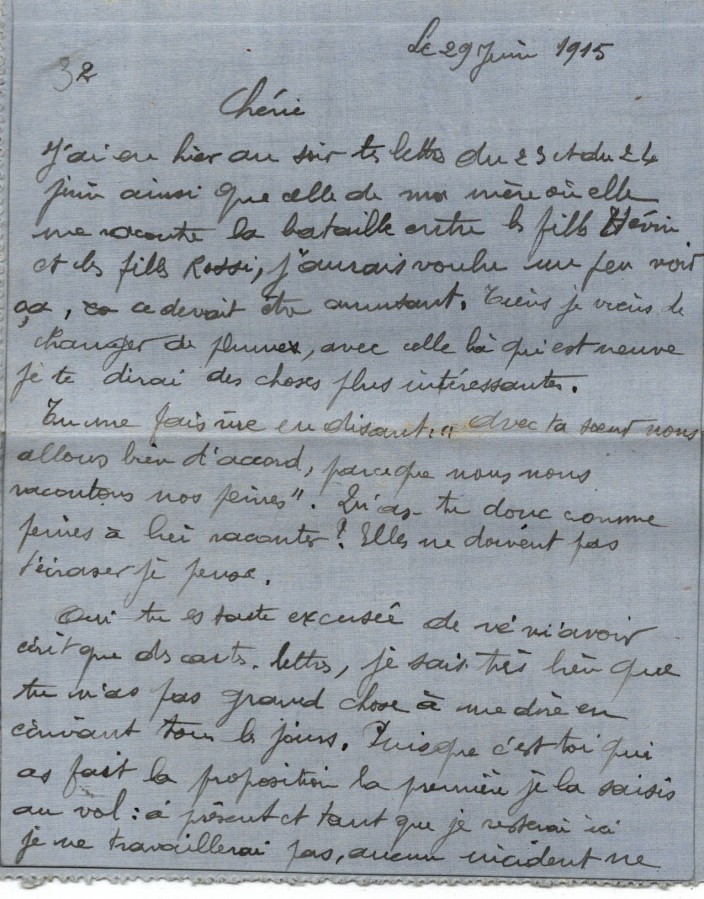 Le 29 Juin 1915
32
Chérie
J'ai eu hier au soir tes lettres du 23 et du 24
juin ainsi que celle de ma mère où elle
me raconte la bataille entre les filles Hévin
et les filles Rossi, j'aurais voulu un peu voir
ça, ce devait être amusant. Tiens je viens de
changer de plume, avec celle là qui est neuve
je te dirai des choses plus intéressantes.
Tu me fais rire en disant : " avec ta sœur nous
allons bien d'accord, parce que nous nous
racontons nos peines". Qu'as-tu donc comme
peines à lui raconter? Elles ne doivent pas
t'écraser je pense.
Oui tu es toute excusée de ne m'avoir
écrit que des cartes-lettres, je sais très bien que
tu n'as pas grand chose à me dire en
écrivant tous les jours. Puisque c'est toi qui
as fait la proposition la première je la saisis
au vol : à présent et tant que je resterai ici
je ne travaillerai pas, aucun incident ne